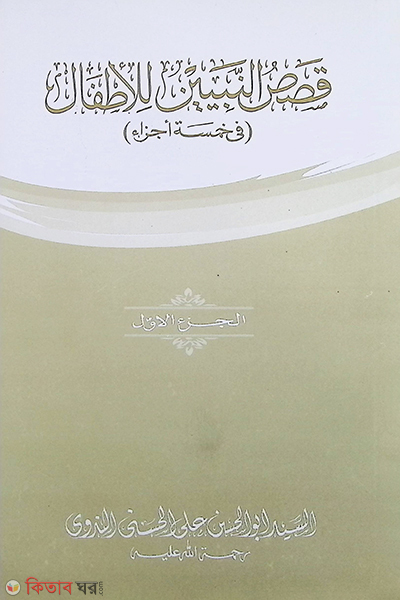 قصص النبيين للأطفال
(في خمسة أجزاء)
الجزء الاول
السيد ابو الحسن على الحسنى الندوى
رحمة الله عليه
কিতাব ঘর.com